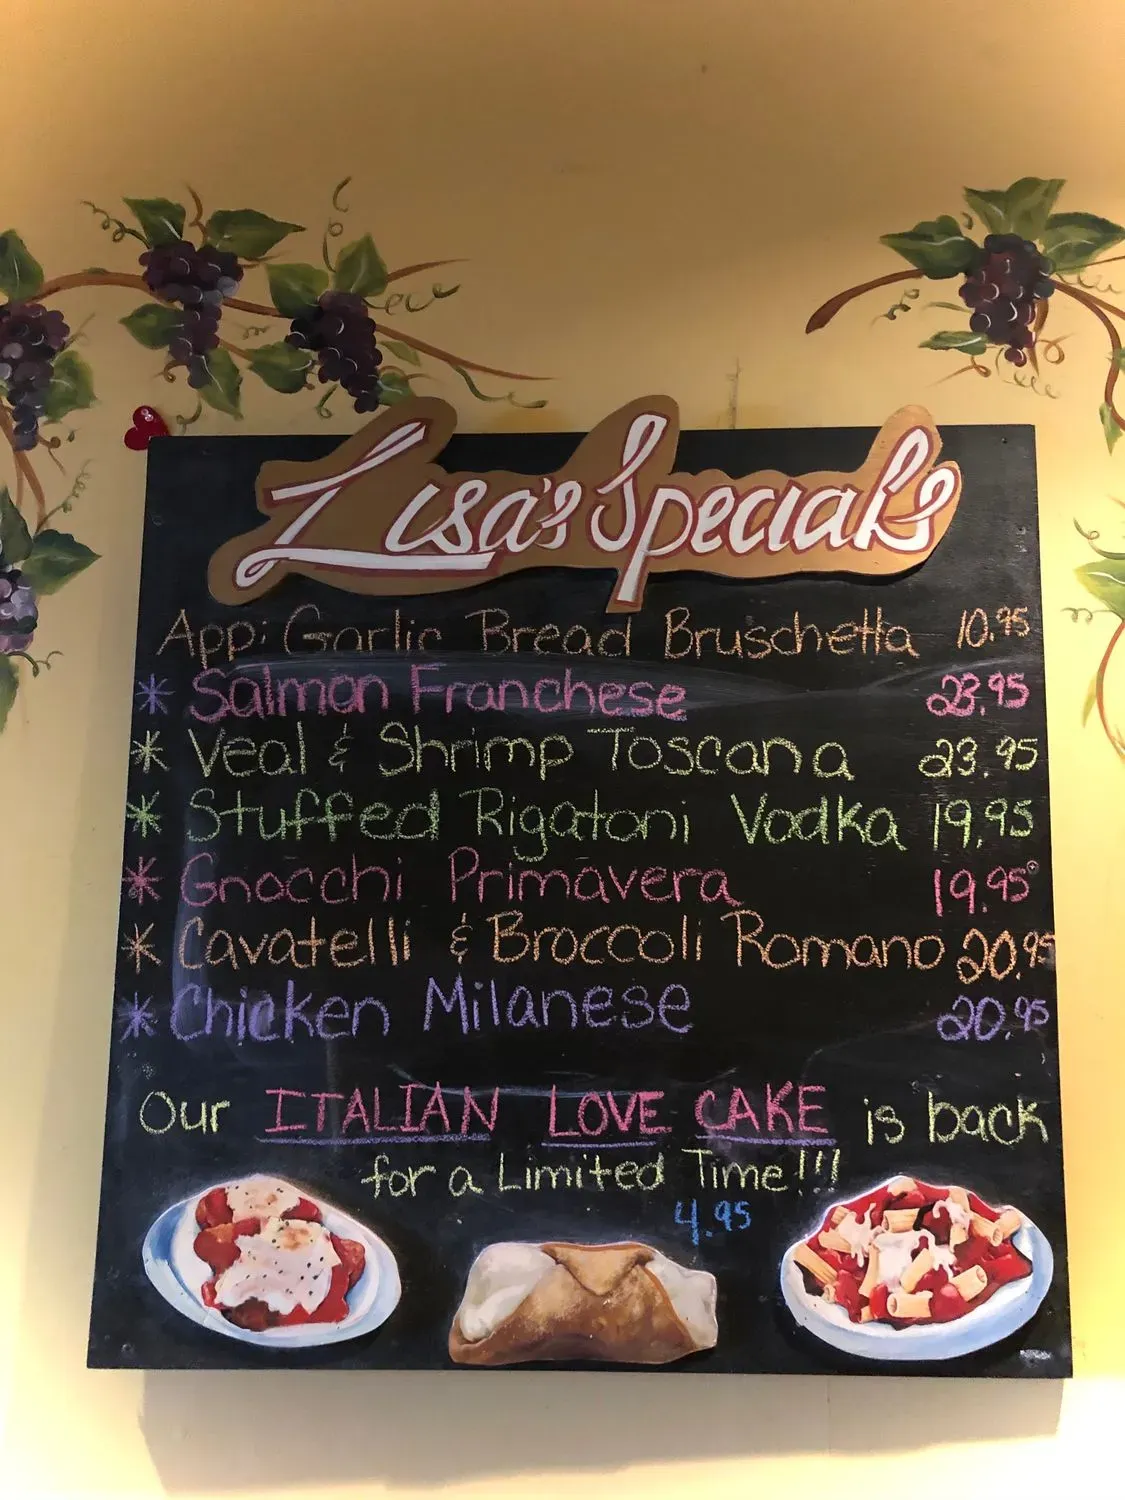 Lisa's Specials
App: Garlic Bread Bruschetta 10.95
* Salmon Franchese 23.95
* Veal & Shrimp Toscana 23.95
* Stuffed Rigatoni Vodka 19.95
* Gnocchi Primavera 19.95
* Cavatelli & Broccoli Romano 20.95
* Chicken Milanese 20.95
Our ITALIAN LOVE CAKE is back
for a Limited Time!!!
4.95